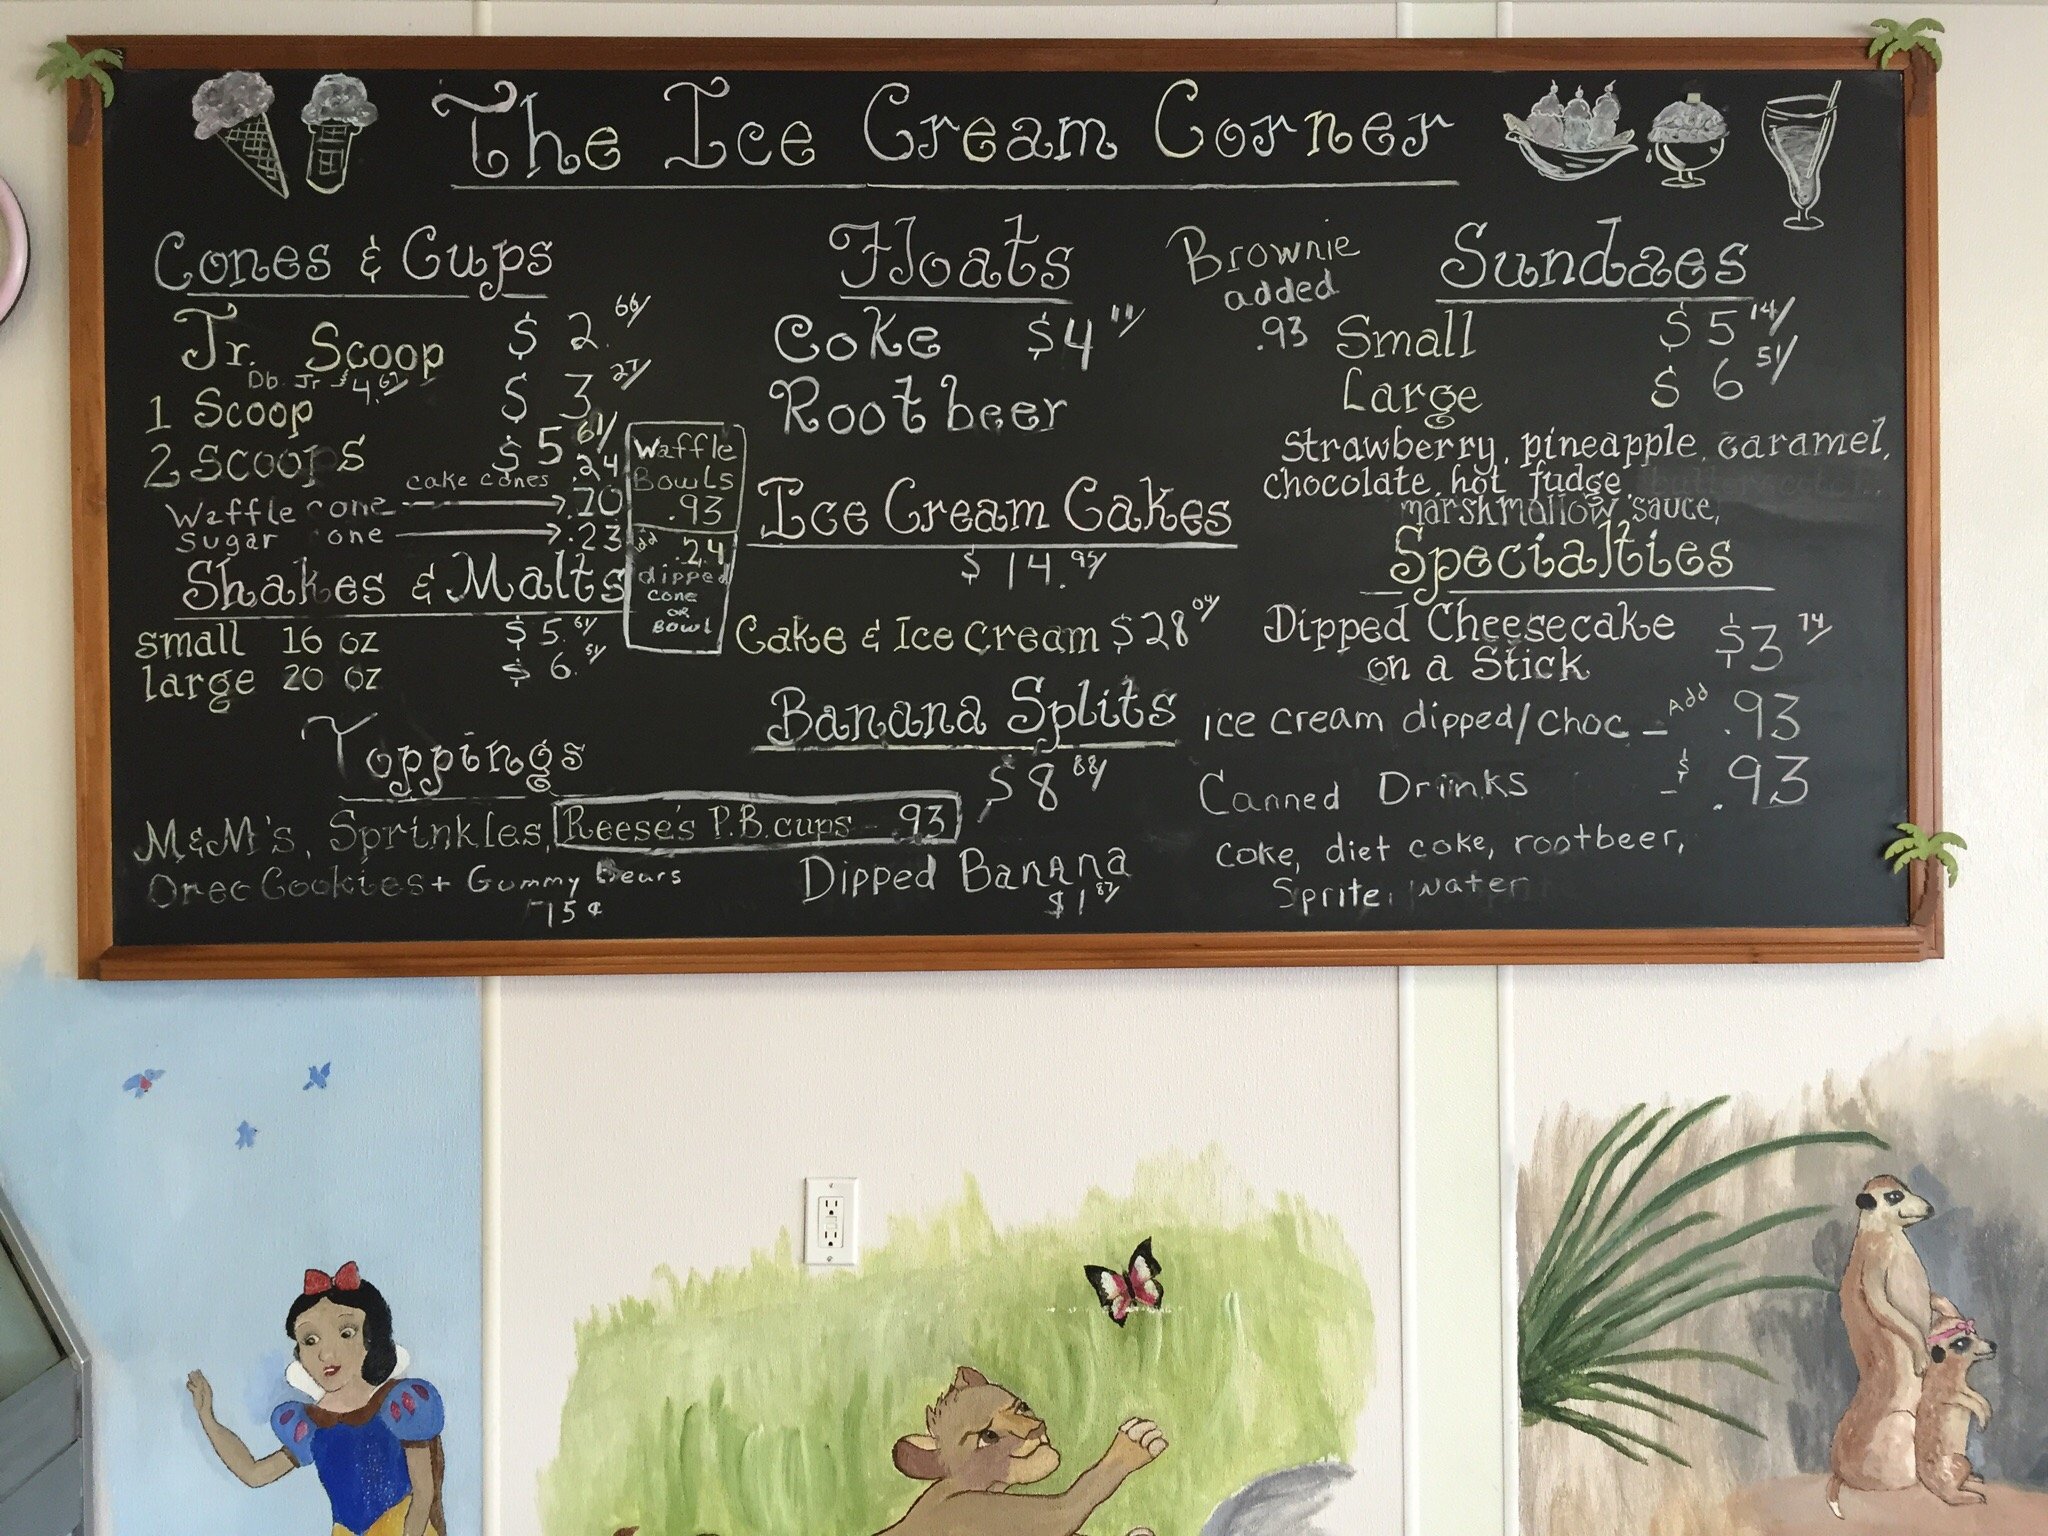 The Ice Cream Corner
Cones & Cups
Jr. Scoop $2.66/
Db. Jr $4.67/
1 Scoop $3 27/
2 Scoops $5 61/
cake cones .24
Waffle cone .70
Sugar cone .23
Waffle
Bowls
.93
add .24
dipped
cone
or
Bowl
Shakes & Malts
small 16 oz $5.61/
large 20 oz $6.51/
Toppings
M&M's, Sprinkles, Reese's P.B. cups - .93
Oreo Cookies + Gummy Bears
75¢
Floats
Coke $4 11/
Root beer
Ice Cream Cakes
$14.95/
Cake & Ice Cream $28 04/
Banana Splits
$8 88/
Dipped Banana
$1 87/
Brownie
added
.93
Sundaes
Small $5 14/
Large $6 51/
Strawberry, pineapple, caramel,
chocolate, hot fudge
marshmallow sauce,
Specialties
Dipped Cheesecake $3 74/
on a Stick
Ice cream dipped/choc - Add .93
Canned Drinks - $.93
Coke, diet coke, rootbeer,
Sprite, water